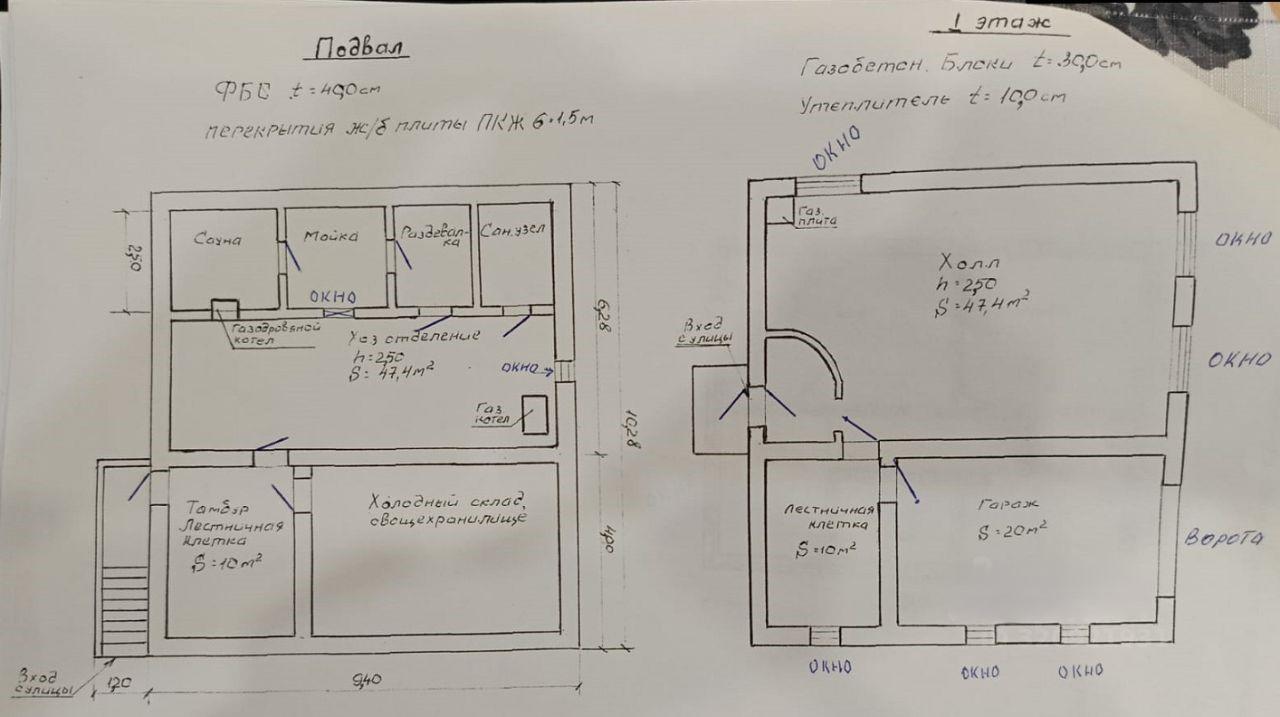 Подвал
ФБС t=40,0см
перекрытия ж/б плиты ПКЖ 6*1,5м
Сауна
Мойка
Раздевал-
ка
Сан.узел
2,50
ОКНО
Газодровяной
котел
Хоз отделение
h=2,50
S=47,4м²
ОКНО
Газ.
котел
6,28
10,28
4,00
Тамбур
Лестничная
клетка
S=10м²
Холодный склад,
овощехранилище
Вход
с улицы
1,20
9,40
1 этаж
Газобетон. Блоки t=30,0см
Утеплитель t=10,0см
ОКНО
Газ.
плита
Холл
h=2,50
S=47,4м²
ОКНО
ОКНО
Вход
с улицы
Лестничная
клетка
S=10м²
Гараж
S=20м²
Ворота
ОКНО
ОКНО
ОКНО